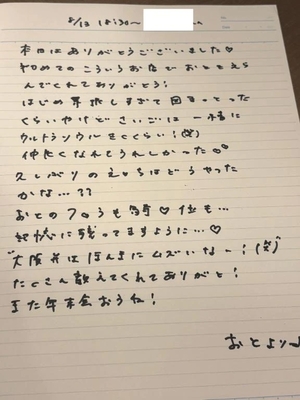 8/12 18:30〜
本日はありがとうございました♡
初めてのこういうお店でおとをえら
んでくれてありがとう!
はじめ緊張しすぎて固まっとった
くらいやけどさいごは一緒に
ウルトラソウルきくくらい!(笑)
仲良くなれてうれしかった
久しぶりのえっちはどうやった
かな…??
おとのフロうも時♡位も…
記憶に残ってますように…♡
"大阪弁はほんまにムズいなー!(笑)
たくさん教えてくれてありがと!
また年末会おうね!
おとより